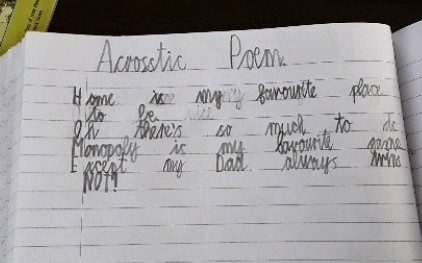 Acrosstic Poem
Home is my favourite place
to be
Oh there's so much to do
Monopoly is my favourite game
Except my Dad always wins
NOT!